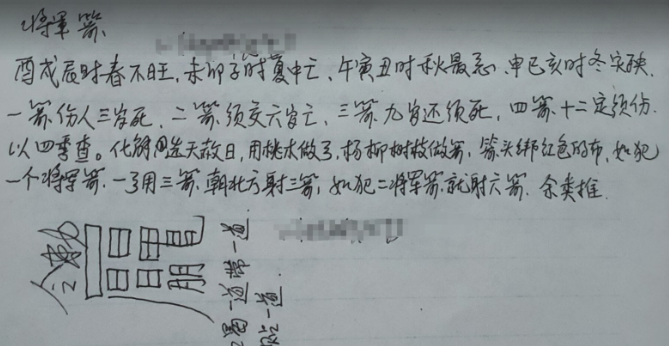 将军箭
酉戌辰时春不旺,未卯子时夏中亡,午寅丑时秋最忌,申巳亥时冬灾殃.
一箭伤人三岁死,二箭须交六岁亡,三箭九岁还须死,四箭十二定须伤.
以四季查。化解用选天赦日,用桃木做弓,杨柳树枝做箭,箭头绑红色的布,如犯
一个将军箭.一弓用三箭.朝北方射三箭,如犯二将军箭就射六箭.余类推.
敕令
一道带一道
一道